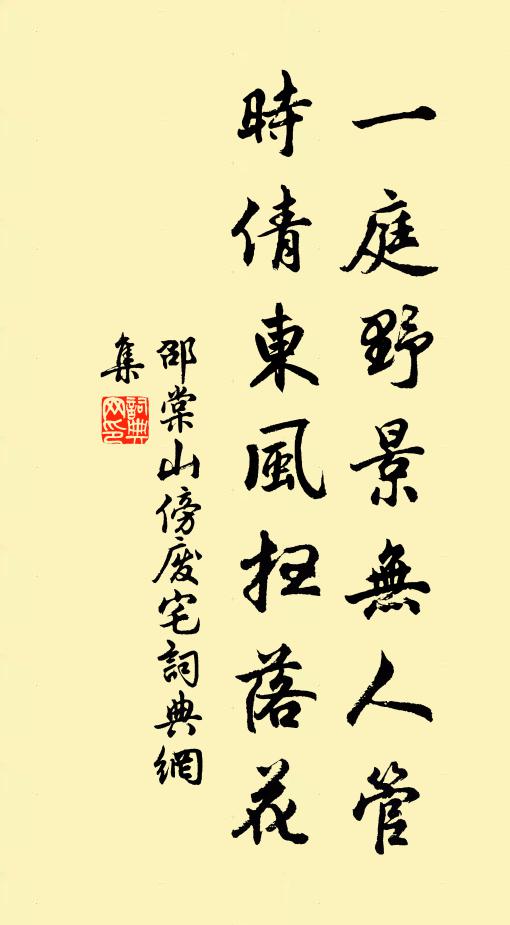 一庭野景無人管
時倩東風掃落花
邵棠山傍廢宅詞典網
集
詞典網印